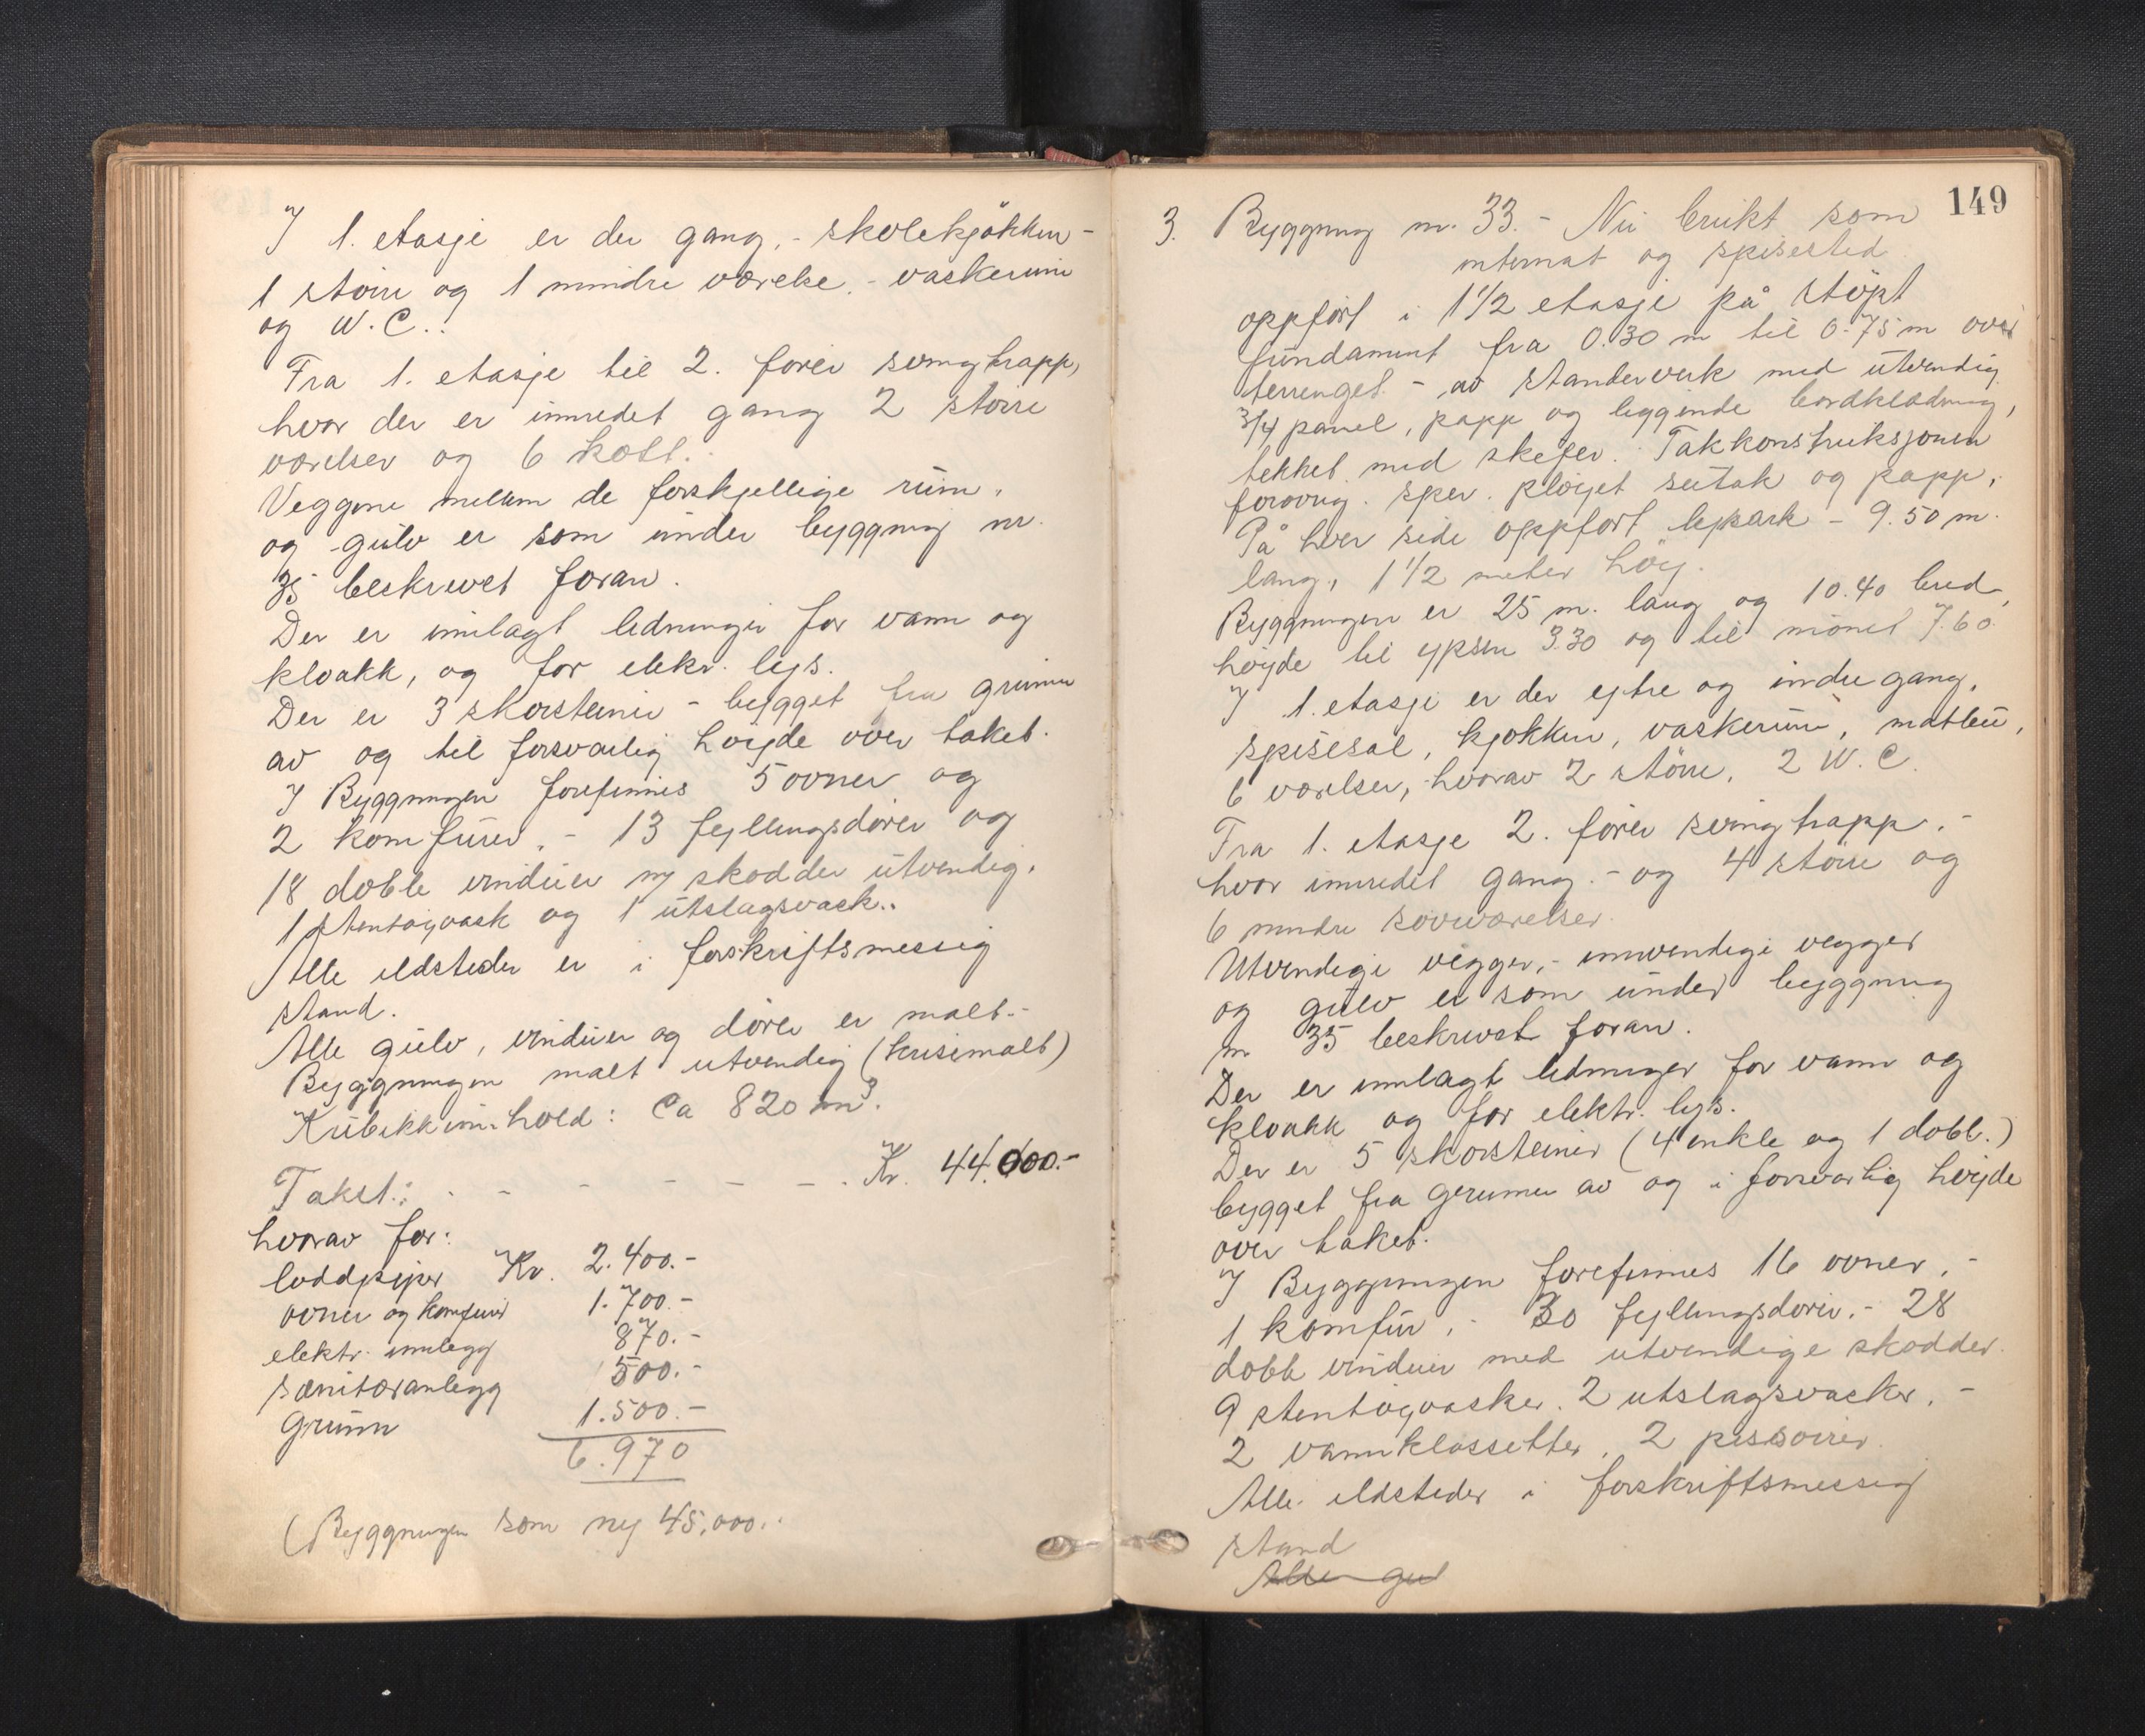 I 1. etasje er der gang, - skolekjøkken -
1 større og 1 mindre værelse, - vaskerum
og W.C..
Fra 1. etasje til 2. fører svingtrapp,
hvor der er innredet gang 2 større
værelser og 6 kott.
Veggene mellem de forskjellige rum,
og gulv er som under byggning nr.
35 beskrevet foran.
Der er innlagt ledninger for vann og
kloakk, og for elekr. lys.
Der er 3 skorsteiner - bygget fra grunnen
av og til forsvarlig høyde over taket.
I Byggningen forefinnes 5 ovner og
2 komfurer, - 13 fyllingsdører og
18 doble vinduer m/ skodder utvendig,
1 stentøyvask og 1 utslagsvask..
Alle ildsteder er i forskriftsmessig
stand.
Alle gulv, vinduer og dører er malt.-
Byggningen malt utvendig (krisemalt)
Kubikkinnhold: Ca 820 m³.
Takst: . - - - - - . Kr. 44.000.-
hvorav for:
loddpiper Kr. 2.400.-
ovner og komfurer 1.700.-
elektr. innlegg 870.-
sanitæranlegg 500.-
Grunn 1.500.-
6.970
(Byggningen som ny 45.000..
149
3. Byggning nr. 33. - Nu brukt som
internat og spisested
oppført i 1 1/2 etasje på støpt
fundament fra 0.30 m til 0.75 m over
terrenget - av standerverk med utvendig
3/4 panel, papp og liggende bordkledning,
tekket med skifer. Takkonstruksjonen
forøvrig. sper. pløyet sutak og papp,
På hver side oppført lepark - 9.50 m.
lang, 1 1/2 meter høy.
Byggningen er 25 m. lang og 10.40 bred,
høyde til ypsen 3.30 og til mønet 7.60.
I 1. etasje er der ytre og indre gang,
spisesal, kjøkken, vaskerum, matbu,
6 værelser, hvorav 2 større, 2 W.C.
Fra 1. etasje 2. fører svingtrapp.-
hvor innredet gang.- og 4 større og
6 mindre soveværelser.
Utvendige vegger,- innvendige vegger
og gulv er som under byggning
nr 35 beskrevet foran.
Der er innlagt ledninger for vann og
kloakk og for elektr. lys.
Der er 5 skorsteiner (4 enkle og 1 dobb.)
bygget fra grunnen av og i forsvarlig høyde
over taket.
I Byggningen forefinnes 16 ovner, -
1 komfur, - 30 fyllingsdører, - 28
doble vinduer med utvendige skodder.
9 stentøyvasker. 2 utslagsvasker, -
2 vannklossetter, 2 pissoirer.
Alle ildsteder i forskriftsmessig
stand
Alle gul